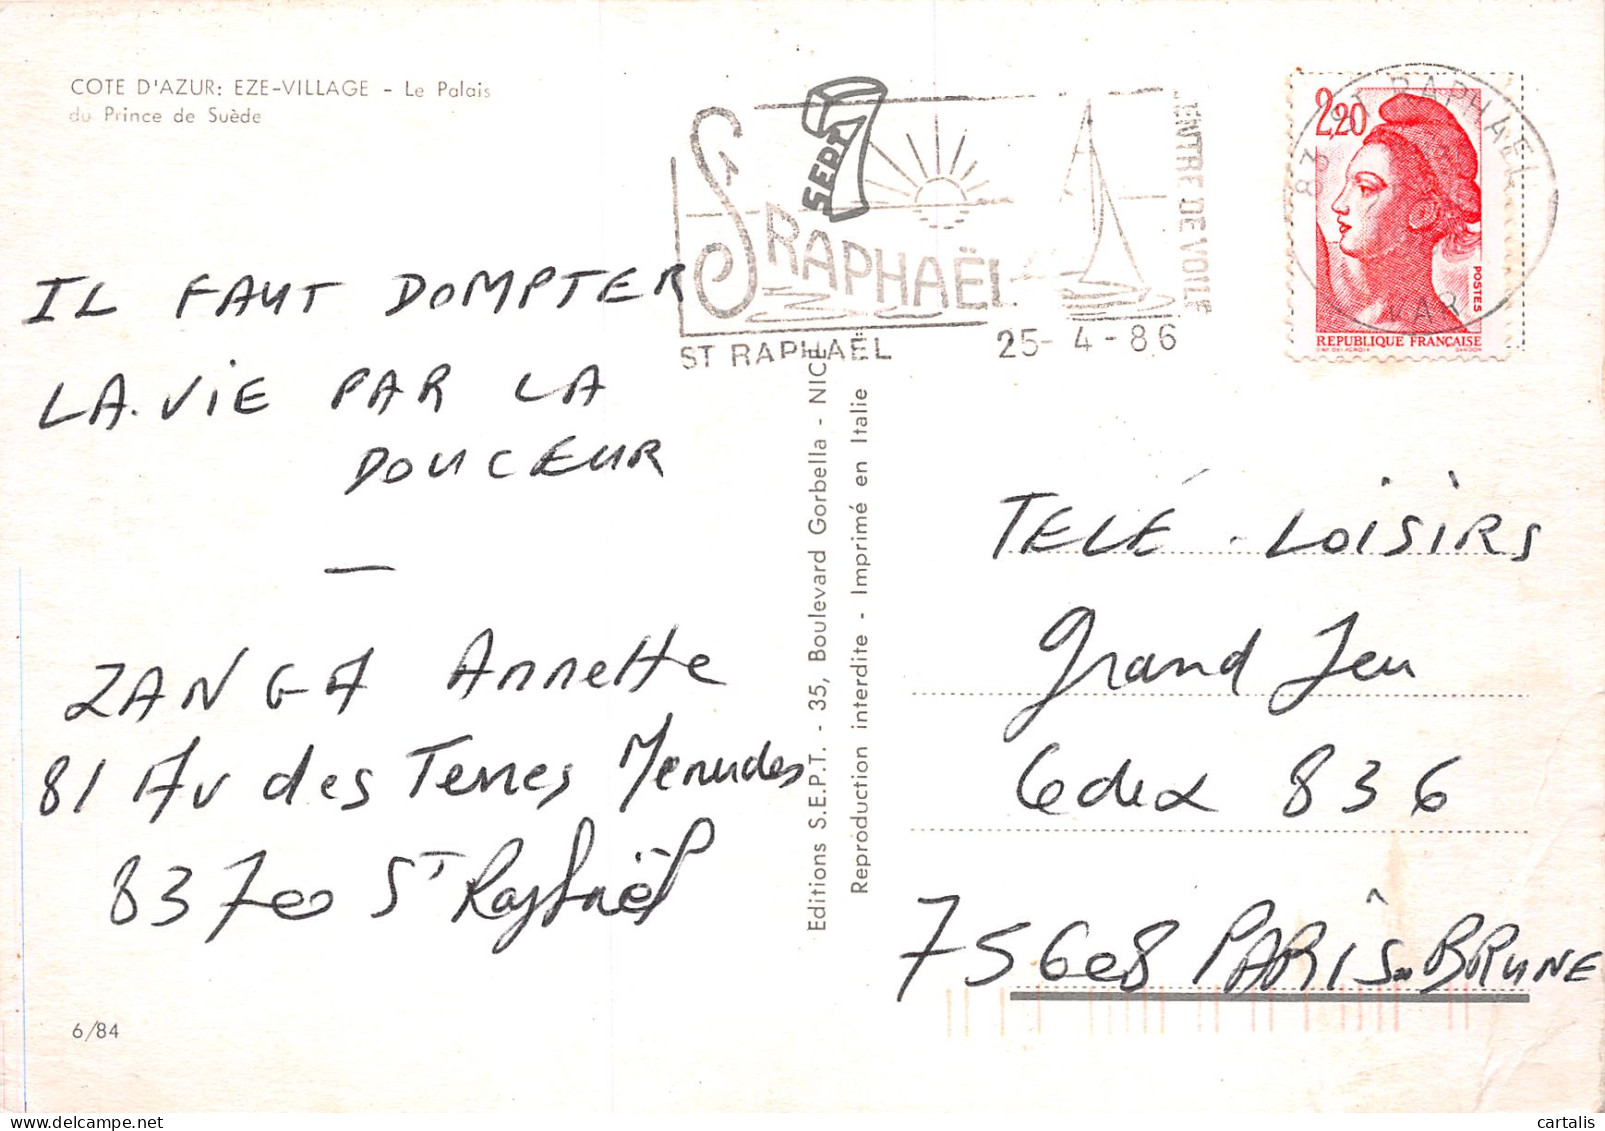 COTE D'AZUR: EZE-VILLAGE - Le Palais
du Prince de Suède
SEPT
ST RAPHAËL
CENTRE DE VOILE
ST RAPHAËL 25-4-86
83 ST RAPHAEL
VAR
2,20
POSTES
REPUBLIQUE FRANCAISE
IL FAUT DOMPTER
LA. VIE PAR LA
DOUCEUR
—
ZANGA Annette
81 Av des Terres Menudes
83700 ST Raphaël
6/84
Editions S.E.P.T. - 35, Boulevard Gorbella - NICE
Reproduction interdite - Imprimé en Italie
TELÉ - LOISIRS
Grand Jeu
Cedex 836
75608 PARIS-BRUNE
cartalis